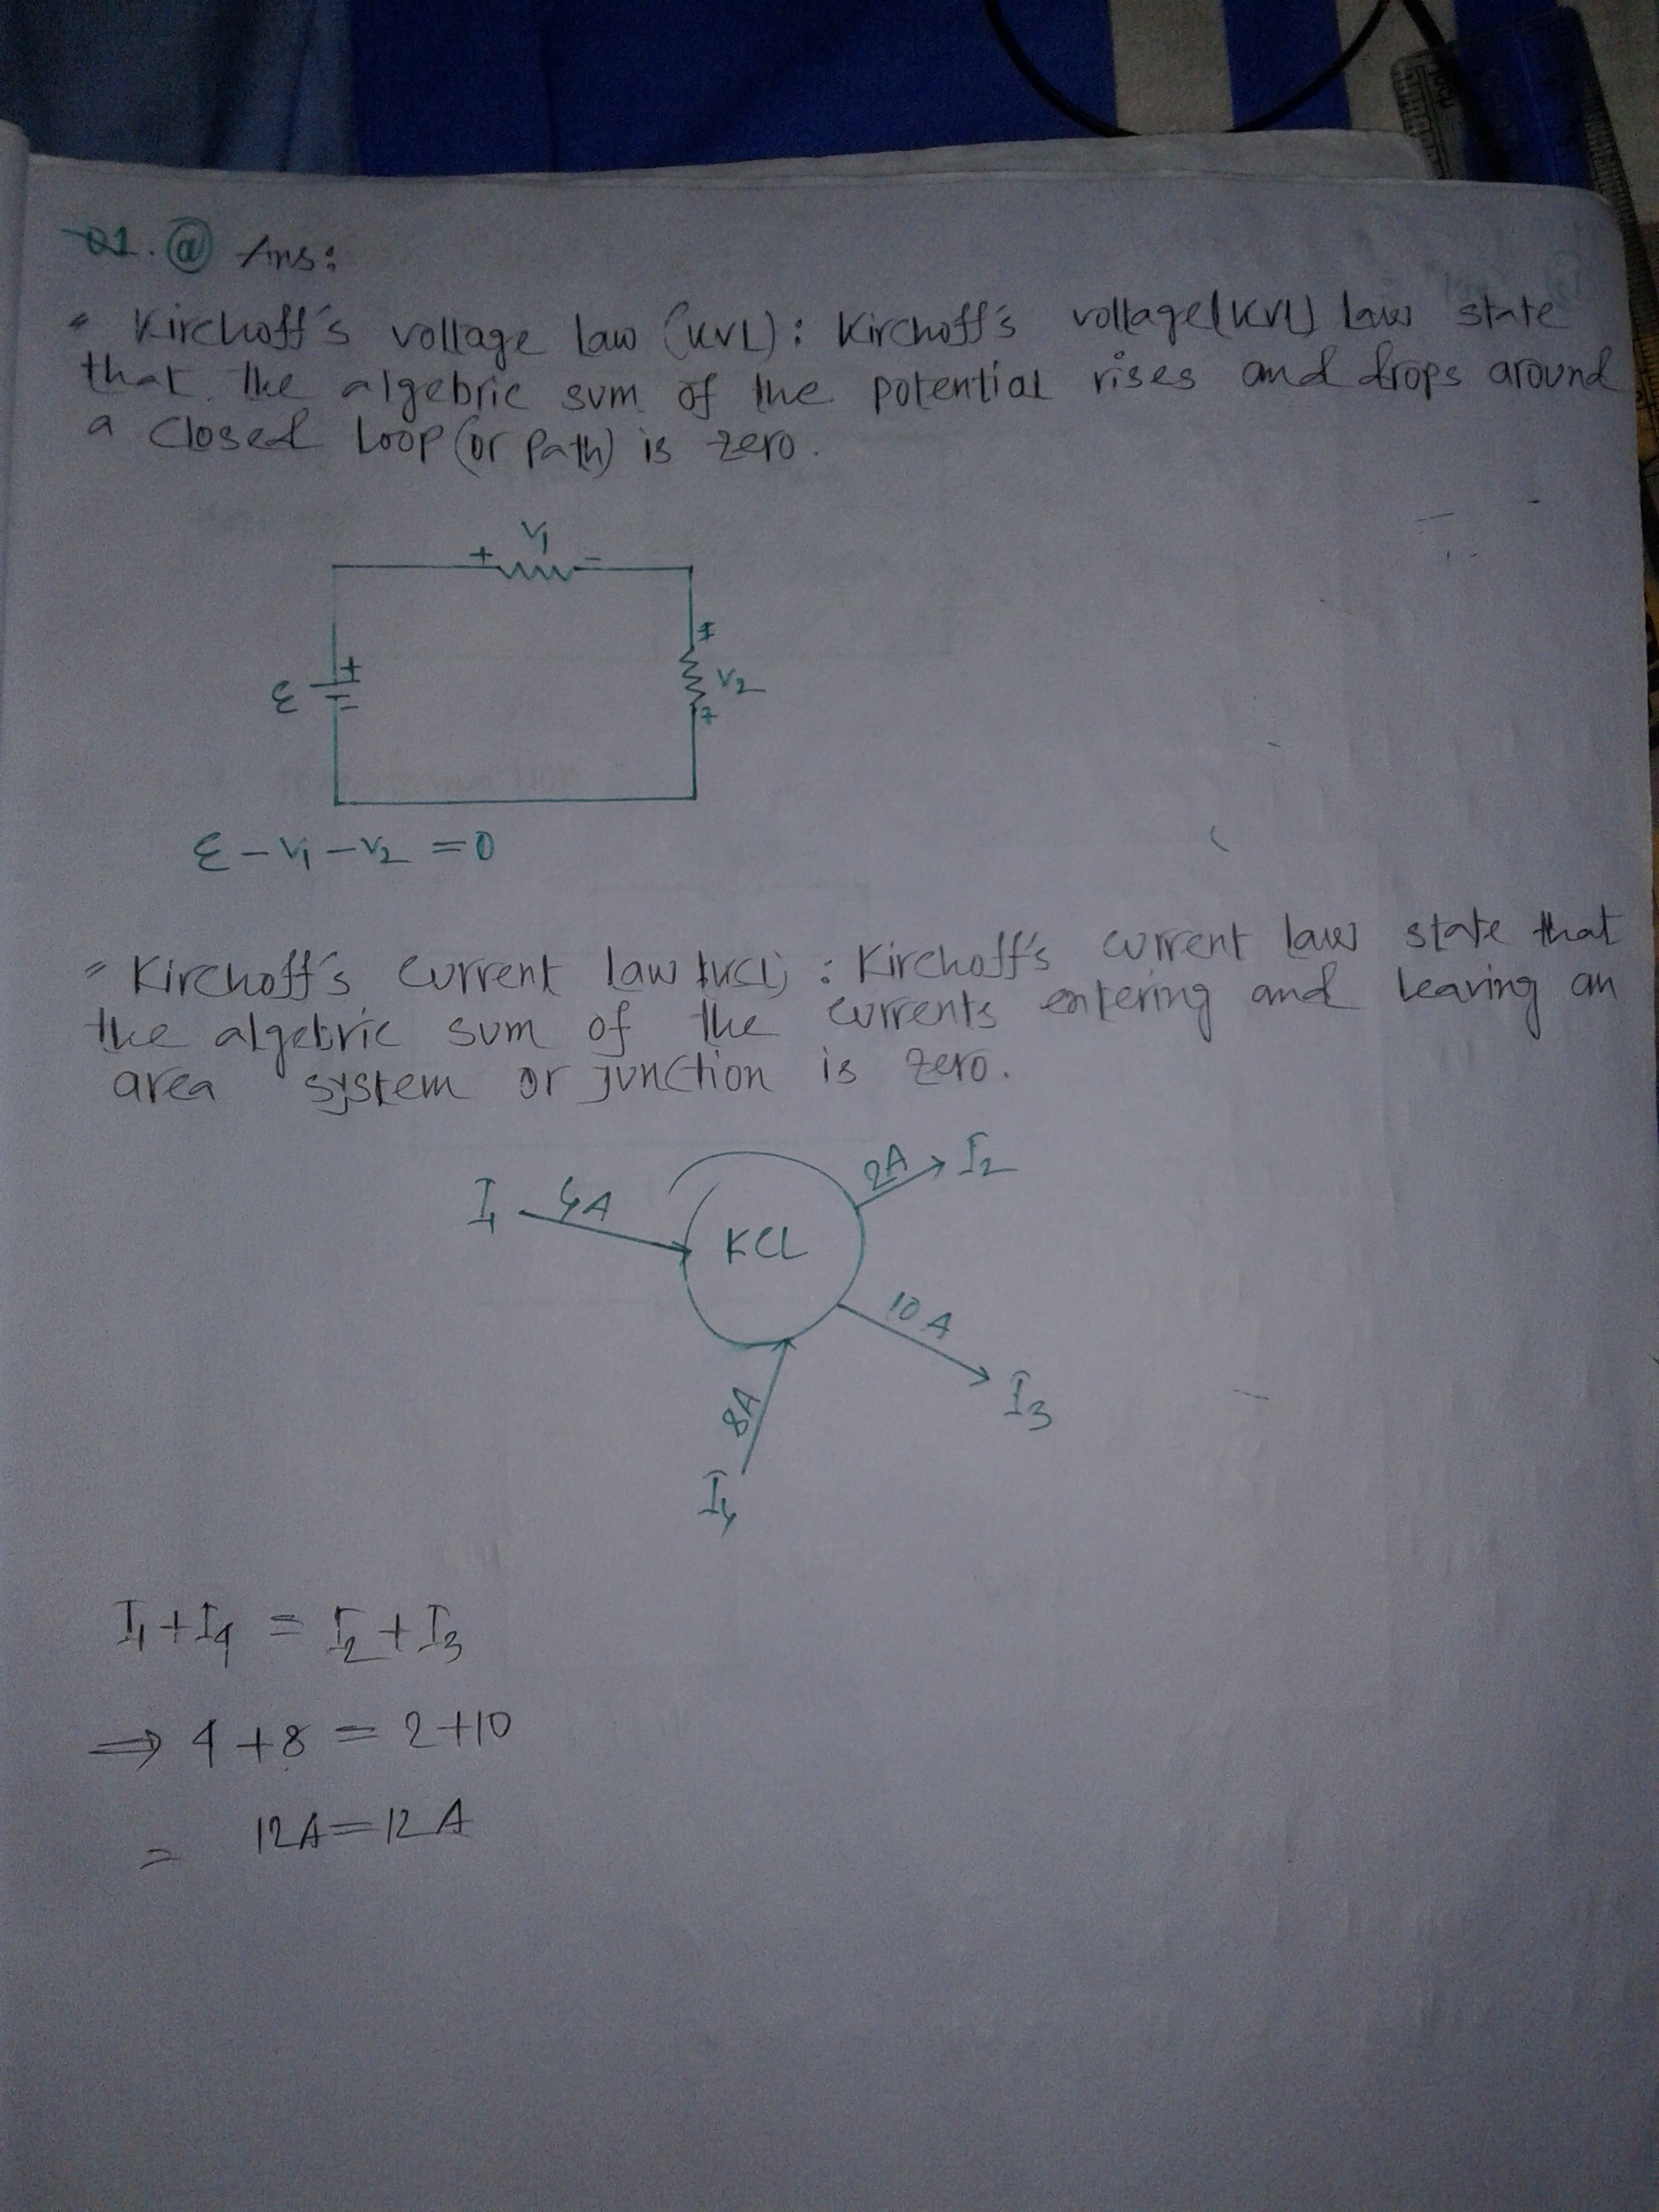 01. (a) Ans:
Kirchoff's voltage law (KVL): Kirchoff's voltage(KVL) law state
that the algebric sum of the potential rises and drops around
a closed loop (or path) is zero.
V1
+ -
+
+
ε
V2
-
ε - V1 - V2 = 0
Kirchoff's current law (KCL) : Kirchoff's current law state that
the algebric sum of the currents entering and leaving an
area system or junction is zero.
2A I2
I1 4A
KCL
10 A
I3
8A
I4
I1 + I4 = I2 + I3
⇒ 4 + 8 = 2 + 10
= 12A = 12 A